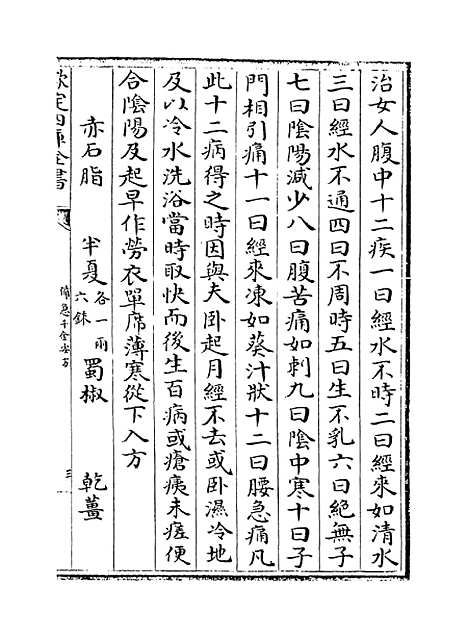 治女人腹中十二疾一曰經水不時二曰經來如清水
三曰經水不通四曰不周時五曰生不乳六曰絶無子
七曰陰陽減少八曰腹苦痛如刺九曰陰中寒十曰子
門相引痛十一曰經來凍如葵汁狀十二曰腰急痛凡
此十二病得之時因與夫卧起月經不去或卧濕冷地
及以冷水洗浴當時取快而後生百病或瘡痍未瘥便
合陰陽及起早作勞衣單席薄寒從下入方
赤石脂 半夏各一兩六銖 蜀椒 乾薑
欽定四庫全書
備急千金要方
三